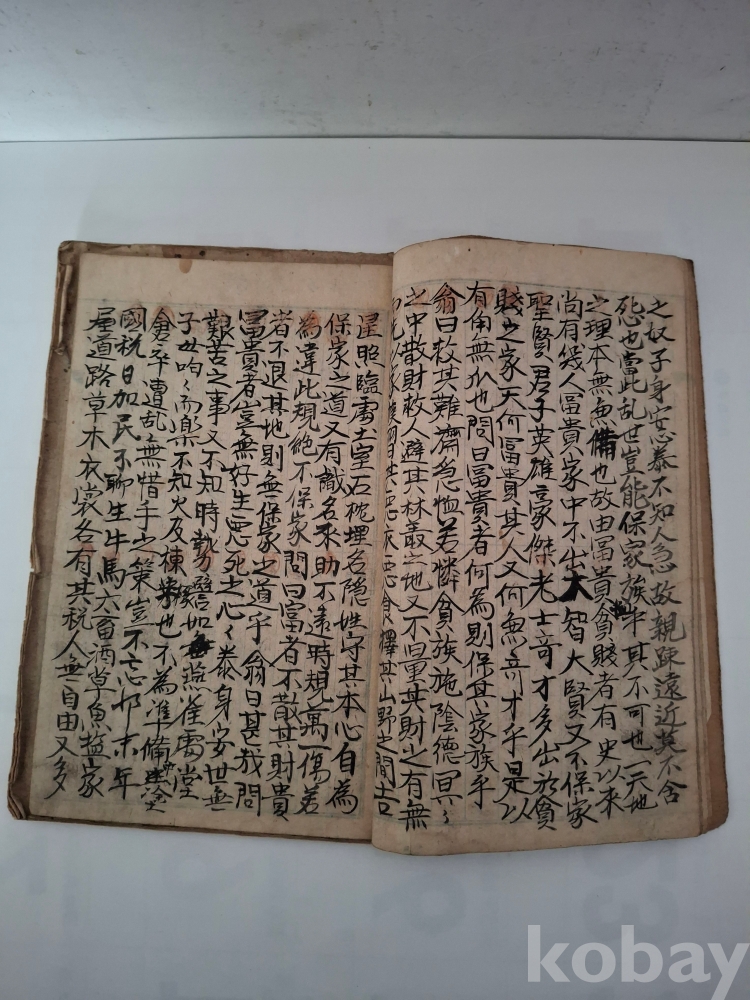 之奴子身安忘暴不知人急故親踈遠近莫不含
死也當此乱世豈能保家族乎其不可也一天地
之理本無兼備也故由冨貴貧賤者有史以來
尚有幾人冨貴家中不出大智大賢又不保家
聖賢君子英雄豪傑老士奇才多出於貧
賤之家天何冨貴其人又何無奇才乎是以
有角無水也問曰冨貴者何為則保其家族乎
翁曰救其難濟急恤若憐貧族施陰德冥〻
之中散財救人避其林叢之地又不量其財之有無
衣惡食擇其山野之間吉
星照臨處土室石枕埋名隠姓守其本心自為
保家之道又有識名來助不遠時規萬一傷若
為違此規絶不保家問曰富者不散其財貴
者不退其地則無保家之道乎翁曰甚哉問
冨貴者豈無好生惡死之心〻泰身安世無
艱苦之事又不知時勢譬如燕雀處堂
子母呴〻而楽不知火及棟樑也不為準備塗
倉卒遭乱無措手之策豈不忘却末年
國税日加民不聊生牛馬六畜酒草魚塩家
屋道路草木衣裳各有其税人無自由又多
kobay